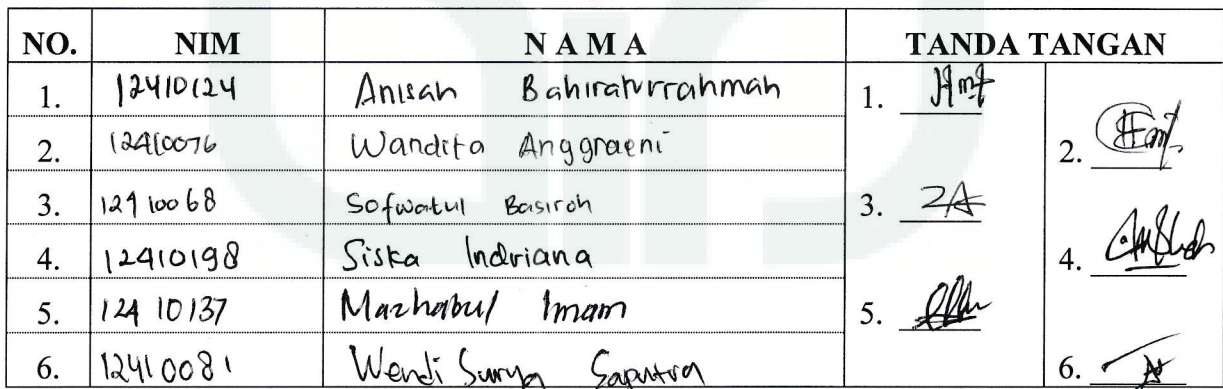 NO. NIM N A M A TANDA TANGAN
1. 12410124 Anisah Bahiraturrahmah 1.
2. 12410076 Wandita Anggraeni 2.
3. 12410068 Sofwatul Basiroh 3.
4. 12410198 Siska Indriana 4.
5. 12410137 Mazhabul Imam 5.
6. 12410081 Wendi Surya Saputra 6.